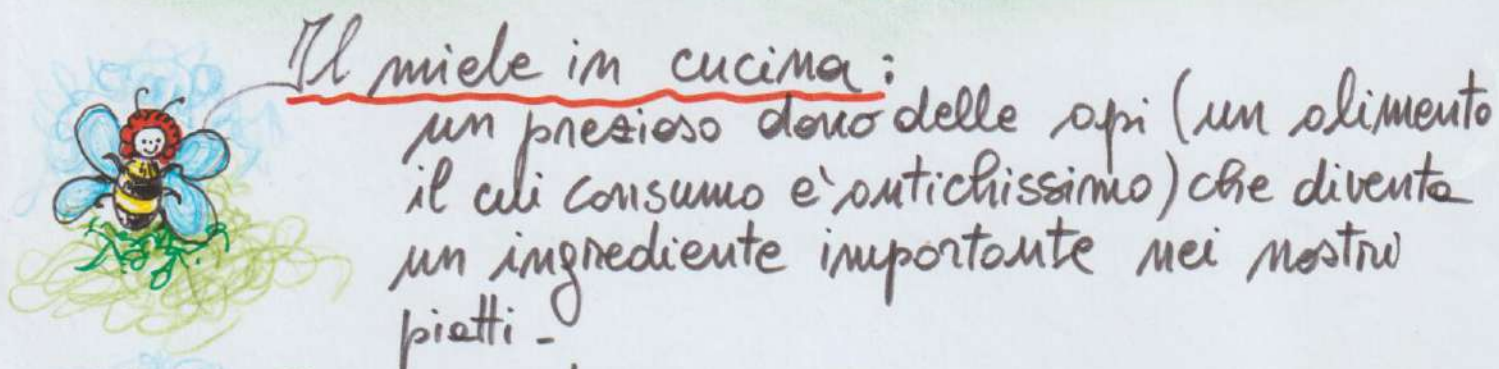 Il miele in cucina:
un prezioso dono delle api (un alimento
il cui consumo e' antichissimo) che diventa
un ingrediente importante nei nostri
piatti -